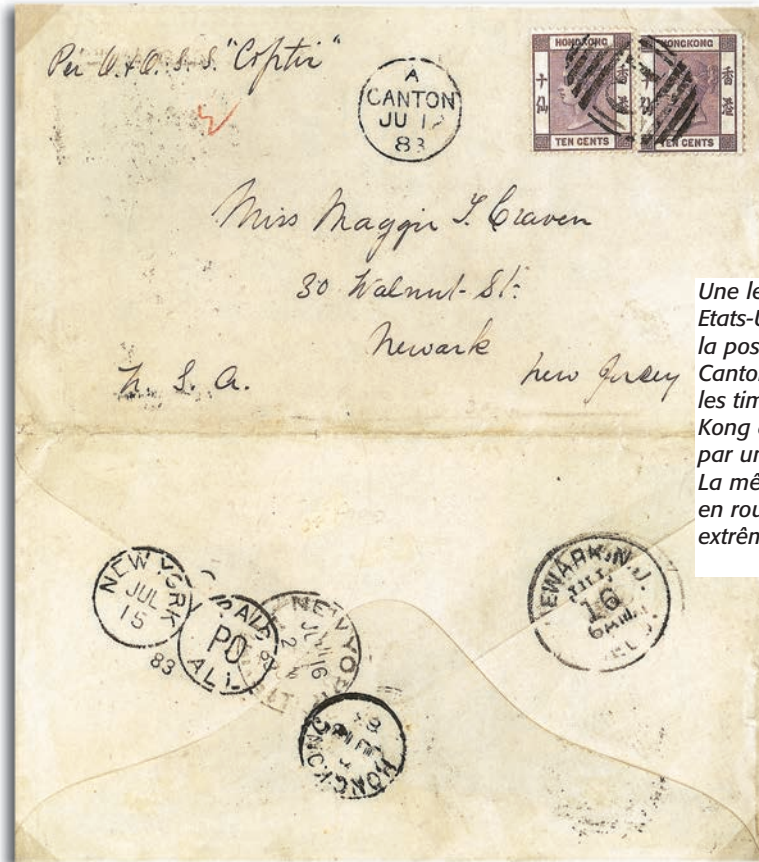 Per O. & O. S. S. "Coptic"
A
CANTON
JU 12
83
HONG KONG
十仙
香港
TEN CENTS
HONGKONG
十仙
香港
TEN CENTS
Miss Maggie I. Craven
30 Walnut St:
Newark
New Jersey
U. S. A.
Une le
Etats-U
la pos
Canton
les tim
Kong
par un
La mê
en rou
extrêm
NEW YORK
JUL
15
83
PO
ALL
NEW YOR
16
2
HONGKONG
83
EWARK, N.J.
JUL
16
6AM